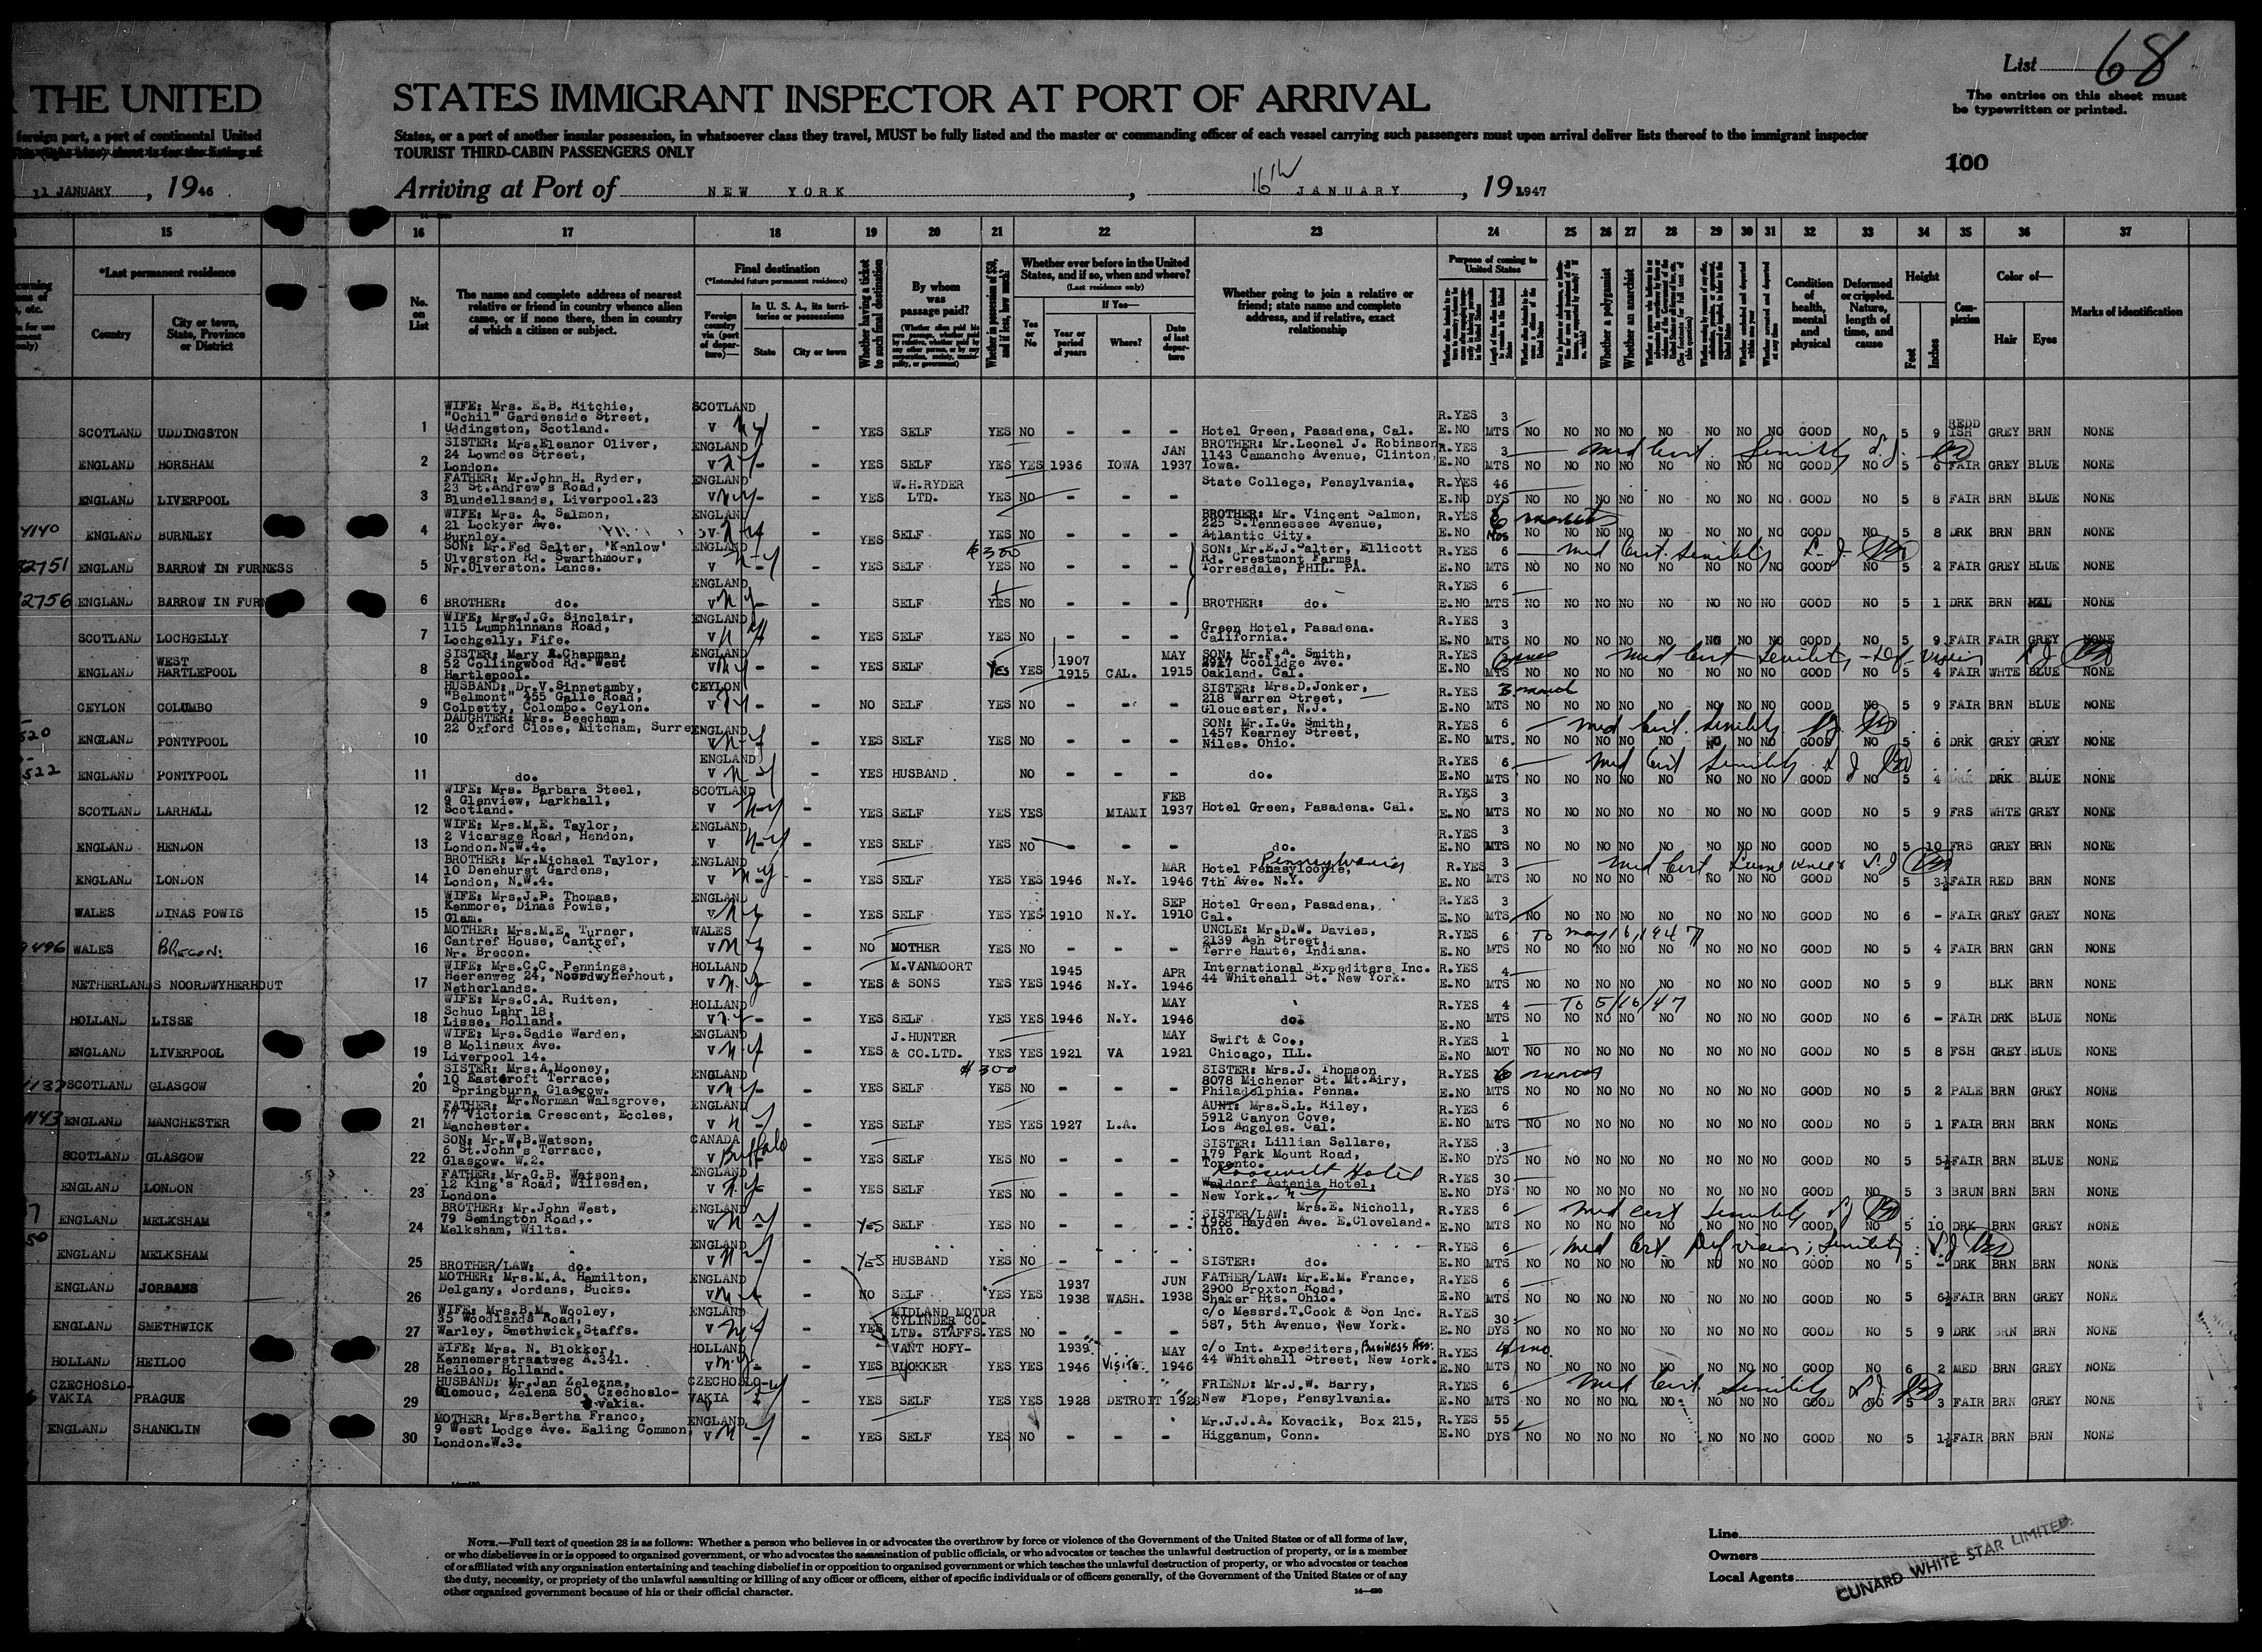 List 68
The entries on this sheet must
be typewritten or printed.
THE UNITED STATES IMMIGRANT INSPECTOR AT PORT OF ARRIVAL
foreign port, a port of continental United States, or a port of another insular possession, in whatsoever class they travel, MUST be fully listed and the master or commanding officer of each vessel carrying such passengers must upon arrival deliver lists thereof to the immigrant inspector
sheet is for the listing of TOURIST THIRD-CABIN PASSENGERS ONLY
100
11 JANUARY, 1946 Arriving at Port of NEW YORK, 16th JANUARY, 19 1947
15 16 17 18 19 20 21 22 23 24 25 26 27 28 29 30 31 32 33 34 35 36 37
*Last permanent residence
Country
City or town, State, Province or District
No. on List
The name and complete address of nearest relative or friend in country whence alien came, or if none there, then in country of which a citizen or subject.
Final destination
(*Intended future permanent residence)
Foreign country via (port of departure)—
In U. S. A., its territories or possessions
State
City or town
Whether having a ticket to such final destination
By whom was passage paid?
Whether in possession of $50, and if less, how much?
Whether ever before in the United States, and if so, when and where?
(Last residence only)
Yes or No
If Yes—
Year or period of years
Where?
Date of last departure
Whether going to join a relative or friend; state name and complete address, and if relative, exact relationship
Purpose of coming to United States
Whether a polygamist
Whether an anarchist
Condition of health, mental and physical
Deformed or crippled. Nature, length of time, and cause
Height
Feet
Inches
Complexion
Color of—
Hair
Eyes
Marks of identification
SCOTLAND UDDINGSTON 1 WIFE: Mrs. E.B. Ritchie, "Ochil" Gardenside Street, Uddingston, Scotland. SCOTLAND V N Y - YES SELF YES NO - - - Hotel Green, Pasadena, Cal. R.YES E.NO 3 MTS NO NO NO NO NO NO NO NO GOOD NO 5 9 REDDISH GREY BRN NONE
ENGLAND HORSHAM 2 SISTER: Mrs.Eleanor Oliver, 24 Lowndes Street, London. ENGLAND V N Y - YES SELF YES YES 1936 IOWA JAN 1937 BROTHER: Mr.Leonel J. Robinson, 1143 Camanche Avenue, Clinton, Iowa. R.YES E.NO 3 MTS Med Cert. Senility NO NO NO NO NO NO NO NO GOOD NO 5 6 FAIR GREY BLUE NONE
ENGLAND LIVERPOOL 3 FATHER: Mr.John H. Ryder, 23 St.Andrew's Road, Blundellsands, Liverpool.23 ENGLAND V N Y - YES W.H.RYDER LTD. YES NO - - - State College, Pensylvania. R.YES E.NO 46 DYS NO NO NO NO NO NO NO NO GOOD NO 5 8 FAIR BRN BLUE NONE
4140 ENGLAND BURNLEY 4 WIFE: Mrs. A. Salmon, 21 Lockyer Ave. Burnley. ENGLAND V N Y - YES SELF YES NO - - - BROTHER: Mr. Vincent Salmon, 225 S.Tennessee Avenue, Atlantic City. R.YES E.NO 6 months NO NO NO NO NO NO NO NO GOOD NO 5 8 DRK BRN BRN NONE
32751 ENGLAND BARROW IN FURNESS 5 SON: Mr.Fed Salter, 'Kenlow' Ulverston Rd. Swarthmoor, Nr.Ulverston. Lancs. ENGLAND V N Y - YES SELF $300 YES NO - - - SON: Mr.E.J.Salter, Ellicott Rd. Crestmont Farms, Torresdale, PHIL. PA. R.YES E.NO 6 MTS Med Cert. Senility NO NO NO NO NO NO NO NO GOOD NO 5 2 FAIR GREY BLUE NONE
2756 ENGLAND BARROW IN FURN 6 BROTHER: do. ENGLAND V N Y - SELF YES NO - - - BROTHER: do. R.YES E.NO 6 MTS NO NO NO NO NO NO NO NO GOOD NO 5 1 DRK BRN HZL NONE
SCOTLAND LOCHGELLY 7 WIFE: Mrs.J.G. Sinclair, 115 Lumphinnans Road, Lochgelly, Fife. ENGLAND V N Y - YES SELF YES NO - - - Green Hotel, Pasadena. California. R.YES E.NO 3 MTS NO NO NO NO NO NO NO NO GOOD NO 5 9 FAIR FAIR GREY NONE
ENGLAND WEST HARTLEPOOL 8 SISTER: Mary E.Chapman, 52 Collingwood Rd. West Hartlepool. ENGLAND V N Y - YES SELF YES YES 1907 1915 CAL. MAY 1915 SON: Mr.F.A. Smith, 2917 Coolidge Ave. Oakland. Cal. R.YES E.NO MTS Med Cert Senility - Def. vision NO NO NO NO NO NO NO NO GOOD NO 5 4 FAIR WHTE BLUE NONE
CEYLON COLUMBO 9 HUSBAND: Dr.V.Sinnetamby, "Belmont" 455 Galle Road, Colpetty, Colombo. Ceylon. CEYLON V N Y - NO SELF YES NO - - - SISTER: Mrs.D.Jonker, 218 Warren Street, Gloucester, N.J. R.YES E.NO 3 MTS NO NO NO NO NO NO NO NO GOOD NO 5 9 FAIR BRN BLUE NONE
520 ENGLAND PONTYPOOL 10 DAUGHTER: Mrs. Beecham, 22 Oxford Close, Mitcham, Surrey ENGLAND V N Y - YES SELF YES NO - - - SON: Mr.I.G. Smith, 1457 Kearney Street, Niles. Ohio. R.YES E.NO 6 MTS. Med Cert. Senility NO NO NO NO NO NO NO NO GOOD NO 5 6 DRK GREY GREY NONE
522 ENGLAND PONTYPOOL 11 do. ENGLAND V N Y - YES HUSBAND. NO - - - do. R.YES E.NO 6 MTS Med Cert Senility NO NO NO NO NO NO NO NO GOOD NO 5 4 DRK DRK BLUE NONE
SCOTLAND LARHALL 12 WIFE: Mrs. Barbara Steel, 9 Glenview, Larkhall, Scotland. SCOTLAND V N Y - YES SELF YES YES MIAMI FEB 1937 Hotel Green, Pasadena. Cal. R.YES E.NO 3 MTS NO NO NO NO NO NO NO NO GOOD NO 5 9 FRS WHTE GREY NONE
ENGLAND HENDON 13 WIFE: Mrs.M.E. Taylor, 2 Vicarage Road, Hendon, London.N.W.4. ENGLAND V N Y - YES SELF YES NO - - - do. R.YES E.NO 3 MTS NO NO NO NO NO NO NO NO GOOD NO 5 10 FRS GREY BRN NONE
ENGLAND LONDON 14 BROTHER: Mr.Michael Taylor, 10 Denehurst Gardens, London, N.W.4. ENGLAND V N Y - YES SELF YES YES 1946 N.Y. MAR 1946 Hotel Pennsylvania, 7th Ave. N.Y. R.YES E.NO 3 MTS Med Cert Lame knee NO NO NO NO NO NO NO NO GOOD NO 5 3½ FAIR RED BRN NONE
WALES DINAS POWIS 15 WIFE: Mrs.J.P. Thomas, Kenmore, Dinas Powis, Glam. ENGLAND V N Y - YES SELF YES YES 1910 N.Y. SEP 1910 Hotel Green, Pasadena, Cal. R.YES E.NO 3 MTS NO NO NO NO NO NO NO NO GOOD NO 6 - FAIR GREY GREY NONE
9496 WALES BRECON. 16 MOTHER: Mrs.M.E. Turner, Cantref House, Cantref, Nr. Brecon. WALES V N Y - NO MOTHER YES NO - - - UNCLE: Mr.D.W. Davies, 2139 Ash Street, Terre Haute, Indiana. R.YES E.NO 6 MTS To May 16, 1947 NO NO NO NO NO NO NO NO GOOD NO 5 4 FAIR BRN GRN NONE
NETHERLANDS NOORDWYHERHOUT 17 WIFE: Mrs.C.C. Pennings, Heerenweg 24, Noordwyherhout, Netherlands. HOLLAND V N Y - YES M.VANMOORT & SONS YES YES 1945 1946 N.Y. APR 1946 International Expediters Inc. 44 Whitehall St. New York. R.YES E.NO 4 MTS NO NO NO NO NO NO NO NO GOOD NO 5 9 BLK BRN NONE
HOLLAND LISSE 18 WIFE: Mrs.C.A. Ruiten, Schuo Lahr 18, Lisse, Holland. HOLLAND V N Y - YES SELF YES YES 1946 N.Y. MAY 1946 do. R.YES E.NO 4 MTS To 5/16/47 NO NO NO NO NO NO NO NO GOOD NO 6 - FAIR DRK BLUE NONE
ENGLAND LIVERPOOL 19 WIFE: Mrs.Sadie Warden, 8 Molineux Ave. Liverpool 14. ENGLAND V N Y - YES J.HUNTER & CO.LTD. YES YES 1921 VA MAY 1921 Swift & Co., Chicago, ILL. R.YES E.NO 1 MOT NO NO NO NO NO NO NO NO GOOD NO 5 8 FSH GREY BLUE NONE
1137 SCOTLAND GLASGOW 20 SISTER: Mrs.A.Mooney, 10 Eastcroft Terrace, Springburn, Glasgow. ENGLAND V N Y - YES SELF $300 YES NO - - - SISTER: Mrs.J. Thomson 8078 Michener St. Mt.Airy, Philadelphia. Penna. R.YES E.NO 6 months MTS NO NO NO NO NO NO NO NO GOOD NO 5 2 PALE BRN GREY NONE
1143 ENGLAND MANCHESTER 21 FATHER: Mr.Norman Walsgrove, 77 Victoria Crescent, Eccles, Manchester. ENGLAND V N Y - YES SELF YES YES 1927 L.A. AUNT: Mrs.S.L. Riley, 5912 Canyon Cove, Los Angeles. Cal. R.YES E.NO 6 MTS NO NO NO NO NO NO NO NO GOOD NO 5 1 FAIR BRN BRN NONE
SCOTLAND GLASGOW 22 SON: Mr.W.B.Watson, 6 St.John's Terrace, Glasgow. W.2. CANADA V Buffalo - YES SELF YES NO - - - SISTER: Lillian Sellare, 179 Park Mount Road, Toronto. R.YES E.NO 3 DYS NO NO NO NO NO NO NO NO GOOD NO 5 5½ FAIR BRN BLUE NONE
ENGLAND LONDON 23 FATHER: Mr.G.B. Watson, 12 King's Road, Willesden, London. ENGLAND V N.Y. - YES SELF YES NO - - - Roosevelt Hotel Waldorf Astenia Hotel, New York. N Y R.YES E.NO 30 DYS NO NO NO NO NO NO NO NO GOOD NO 5 3 BRUN BRN BRN NONE
ENGLAND MELKSHAM 24 BROTHER: Mr.John West, 79 Semington Road, Melksham, Wilts. ENGLAND V N Y - YES SELF YES NO - - - SISTER/LAW: Mrs.E. Nicholl, 1968 Hayden Ave. E.Cloveland. Ohio. R.YES E.NO 6 MTS Med cert Senility NO NO NO NO NO NO NO NO GOOD NO 5 10 DRK BRN GREY NONE
50 ENGLAND MELKSHAM 25 BROTHER/LAW: do. ENGLAND V N Y - YES HUSBAND YES NO - - - SISTER: do. R.YES E.NO 6 MTS Med Cert Def vision; Senility NO NO NO NO NO NO NO NO GOOD NO 5 - DRK BRN BRN NONE
ENGLAND JORDANS 26 MOTHER: Mrs.M.A. Hamilton, Delgany, Jordans, Bucks. ENGLAND V N Y - NO SELF YES YES 1937 1938 WASH. JUN 1938 FATHER/LAW: Mr.E.M. France, 2900 Broxton Road, Shaker Hts. Ohio. R.YES E.NO 6 MTS NO NO NO NO NO NO NO NO GOOD NO 5 6½ FAIR BRN GREY NONE
ENGLAND SMETHWICK 27 WIFE: Mrs.B.M. Wooley, 35 Woodlands Road, Warley, Smethwick, Staffs. ENGLAND V N Y - YES MIDLAND MOTOR CYLINDER CO- LTD. STAFFS. YES NO - - - c/o Messrs.T.Cook & Son Inc. 587, 5th Avenue, New York. R.YES E.NO 30 DYS NO NO NO NO NO NO NO NO GOOD NO 5 9 DRK BRN BRN NONE
HOLLAND HEILOO 28 WIFE: Mrs. N. Blokker, Kennemerstraatweg A.341. Heiloo, Holland. HOLLAND V N Y - YES VANT HOFY-BLOKKER YES YES 1939 1946 Visits. MAY 1946 c/o Int. Expediters, Business Ass. 44 Whitehall Street, New York. R.YES E.NO 4 mo. MTS NO NO NO NO NO NO NO NO GOOD NO 6 2 MED BRN GREY NONE
CZECHOSLO-VAKIA PRAGUE 29 HUSBAND: Mr.Jan Zelezna, Olomouc, Zelena 80, Czechoslo-vakia. CZECHOSLO-VAKIA V - - YES SELF YES YES 1928 DETROIT 1928 FRIEND: Mr.J.W. Barry, New Flope, Pensylvania. R.YES E.NO 6 MTS Med Cert Senility NO NO NO NO NO NO NO NO GOOD NO 5 3 FAIR BRN GREY NONE
ENGLAND SHANKLIN 30 MOTHER: Mrs.Bertha Franco, 9 West Lodge Ave. Ealing Common, London.W.3. ENGLAND V N Y - YES SELF YES NO - - - Mr.J.J.A. Kovacik, Box 215, Higganum, Conn. R.YES E.NO 55 DYS NO NO NO NO NO NO NO NO GOOD NO 5 1½ FAIR BRN BRN NONE
NOTE.—Full text of question 28 is as follows: Whether a person who believes in or advocates the overthrow by force or violence of the Government of the United States or of all forms of law,
or who disbelieves in or is opposed to organized government, or who advocates the assassination of public officials, or who advocates or teaches the unlawful destruction of property, or is a member
of or affiliated with any organization entertaining and teaching disbelief in or opposition to organized government or which teaches the unlawful destruction of property, or who advocates or teaches
the duty, necessity, or propriety of the unlawful assaulting or killing of any officer or officers, either of specific individuals or of officers generally, of the Government of the United States or of any
other organized government because of his or their official character.
14—430
Line
Owners
Local Agents
CUNARD WHITE STAR LIMITED.